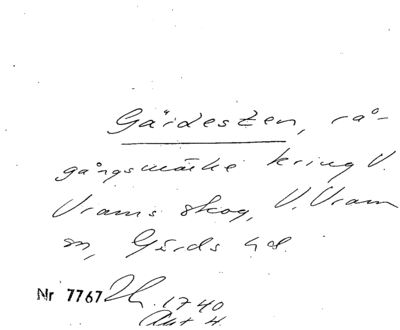 Gärdesten, rå-
gångsmärke kring V.
Vrams skog, V. Vram
sn, Gärds hd.
Nr 7767 Lh. 1740
Akt 4.